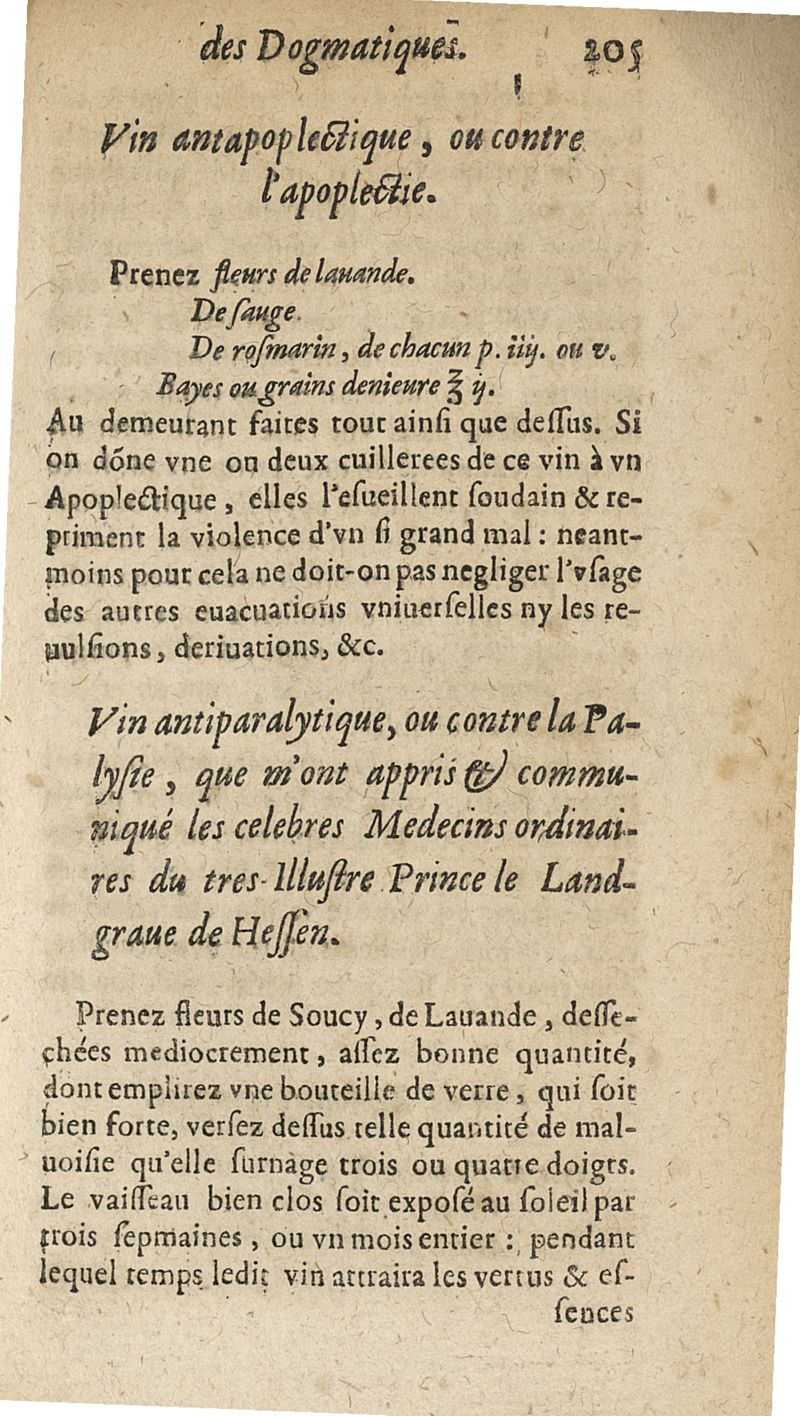 des Dogmatiques. 205
Vin antapoplectique, ou contre
l'apoplectie.
Prenez fleurs de lauande.
De ſauge.
De roſmarin, de chacun p. iiij. ou v.
Bayes ou grains denieure ℥ ij.
Au demeurant faites tout ainſi que deſſus. Si
on dõne vne ou deux cuillerees de ce vin à vn
Apoplectique, elles l'eſueillent ſoudain & re-
priment la violence d'vn ſi grand mal : neant-
moins pour cela ne doit-on pas negliger l'vſage
des autres euacuations vniuerſelles ny les re-
uulſions, deriuations, &c.
Vin antiparalytique, ou contre la Pa-
lyſie, que m'ont appris & commu-
niqué les celebres Medecins ordinai-
res du tres-Illuſtre Prince le Land-
graue de Heſſen.
Prenez fleurs de Soucy, de Lauande, deſſe-
chées mediocrement, aſſez bonne quantité,
dont emplirez vne bouteille de verre, qui ſoit
bien forte, verſez deſſus telle quantité de mal-
uoiſie qu'elle ſurnage trois ou quatre doigts.
Le vaiſſeau bien clos ſoit expoſé au ſoleil par
trois ſepmaines, ou vn mois entier : pendant
lequel temps ledit vin attraira les vertus & eſ-
ſences